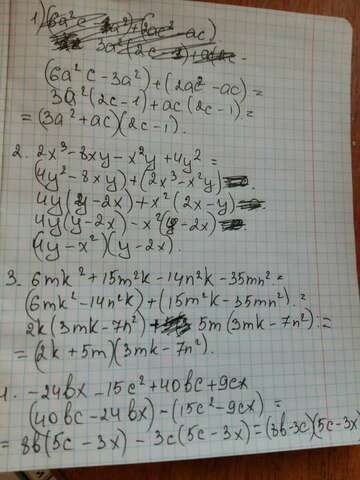 1)
(6a²c - 3a²) + (2ac² - ac) =
3a²(2c - 1) + ac(2c - 1) =
= (3a² + ac)(2c - 1).
2. 2x³ - 8xy - x²y + 4y² =
(4y² - 8xy) + (2x³ - x²y)
4y(y - 2x) + x²(2x - y)
4y(y - 2x) - x²(y - 2x)
(4y - x²)(y - 2x).
3. 6mk² + 15m²k - 14n²k - 35mn² =
(6mk² - 14n²k) + (15m²k - 35mn²) =
2k(3mk - 7n²) + 5m(3mk - 7n²) =
= (2k + 5m)(3mk - 7n²).
4. -24bx - 15c² + 40bc + 9cx
(40bc - 24bx) - (15c² - 9cx) =
= 8b(5c - 3x) - 3c(5c - 3x) = (8b - 3c)(5c - 3x